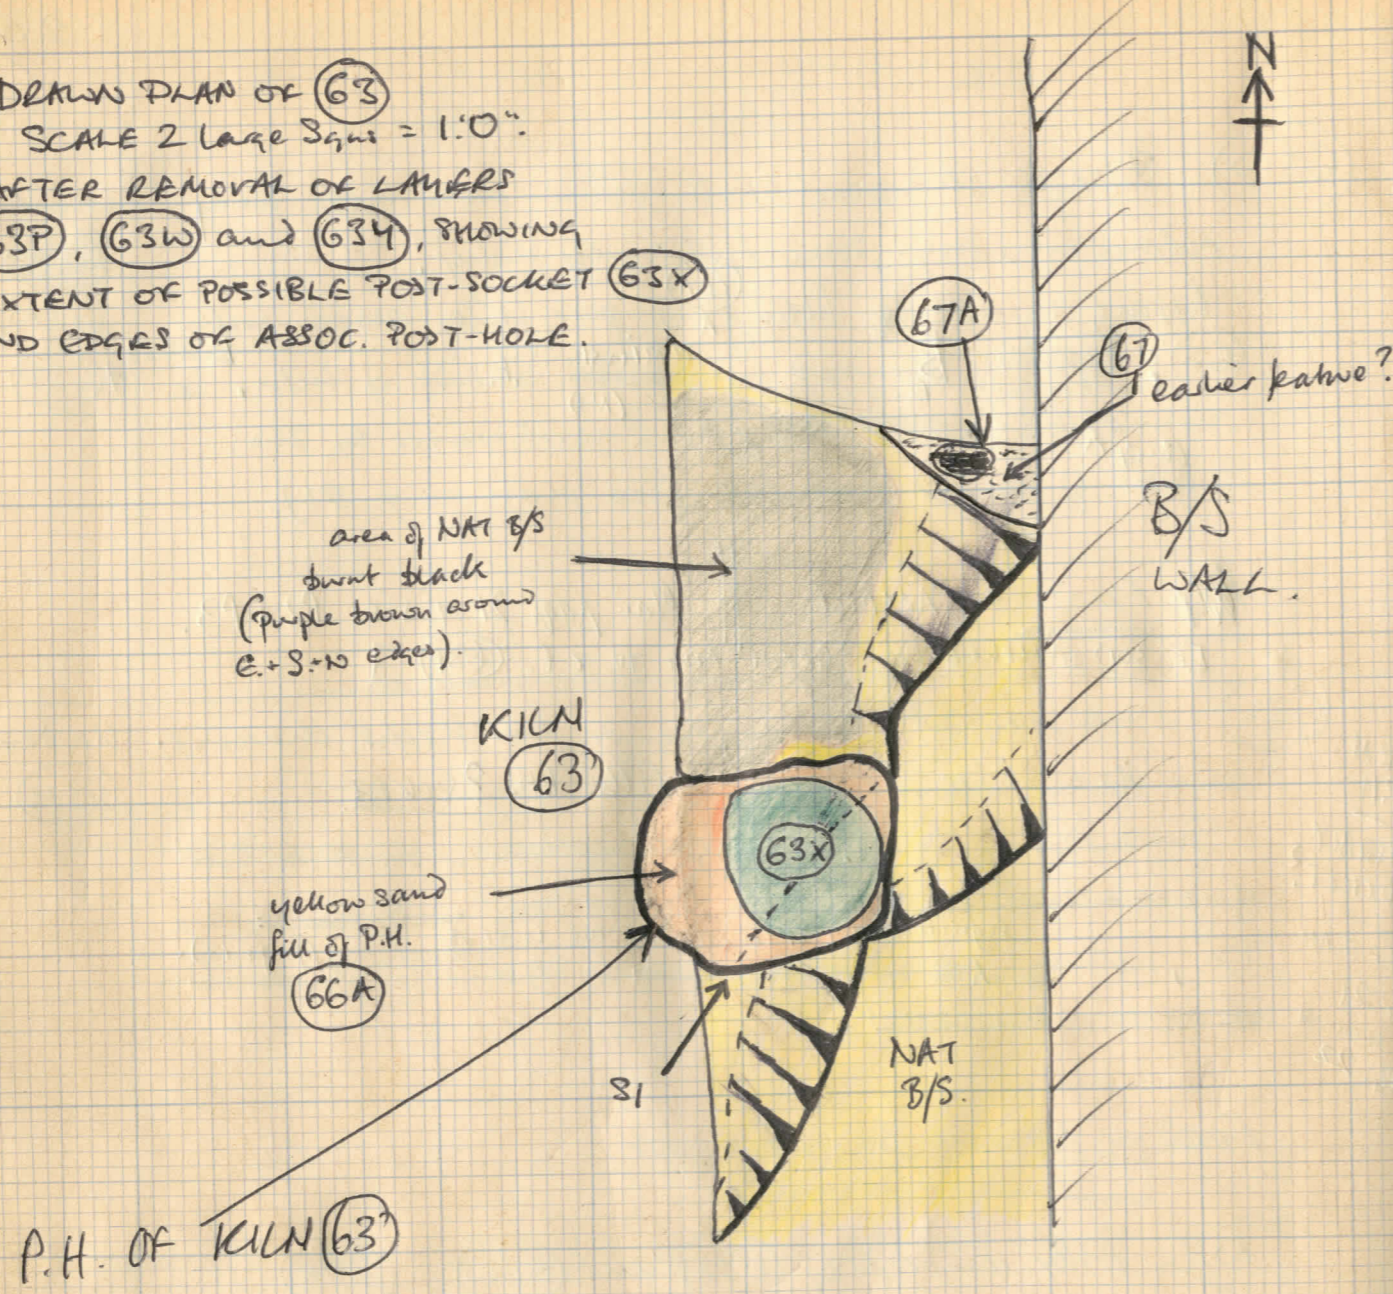 DRAWN PLAN OF 63
SCALE 2 Large Sqrs = 1'.0".
AFTER REMOVAL OF LAYERS
63P, 63W and 63Y, SHOWING
EXTENT OF POSSIBLE POST-SOCKET 63X
ND EDGES OF ASSOC. POST-HOLE.
N
67A
67
earlier feature?
B/S
WALL.
area of NAT B/S
burnt black
(purple brown around
E.+S.+N edges).
KILN
63
63X
yellow sand
fill of P.H.
66A
S1
NAT
B/S.
P.H. OF KILN 63